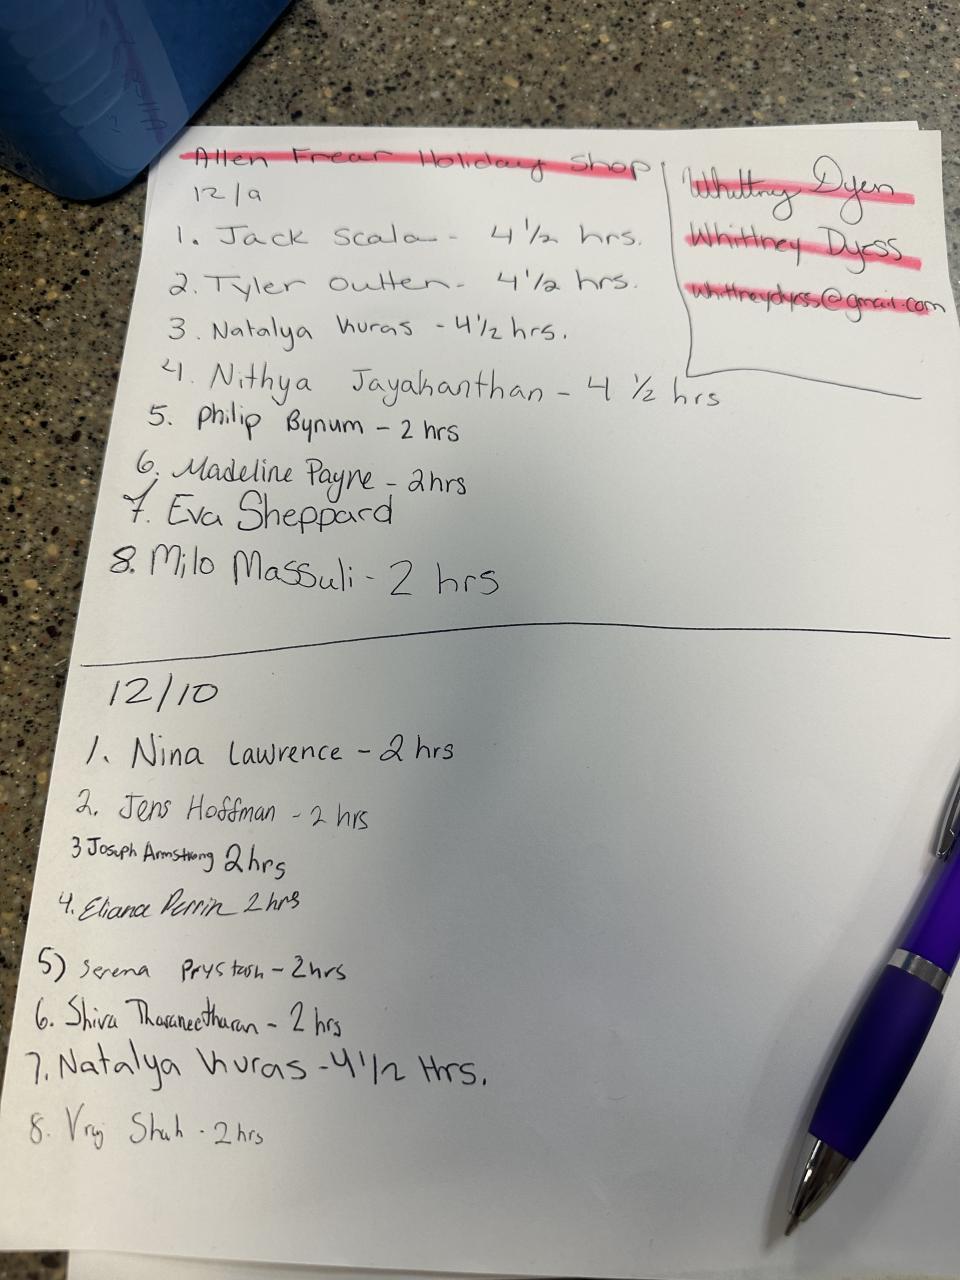 Allen Frear Holiday Shop
12/9
1. Jack Scala - 4 1/2 hrs.
2. Tyler Outten - 4 1/2 hrs.
3. Natalya Kuras - 4 1/2 hrs.
4. Nithya Jayakanthan - 4 1/2 hrs
5. Philip Bynum - 2 hrs
6. Madeline Payne - 2hrs
7. Eva Sheppard
8. Milo Massuli - 2 hrs
Whittney Dyen
Whittney Dyess
whittneydyess@gmail.com
12/10
1. Nina Lawrence - 2 hrs
2. Jens Hoffman - 2 hrs
3 Joseph Armstrong 2hrs
4. Eliana Perrin 2hrs
5) Serena Prystash - 2hrs
6. Shiva Tharaneetharan - 2 hrs
7. Natalya Kuras - 4 1/2 Hrs.
8. Vraj Shah - 2 hrs